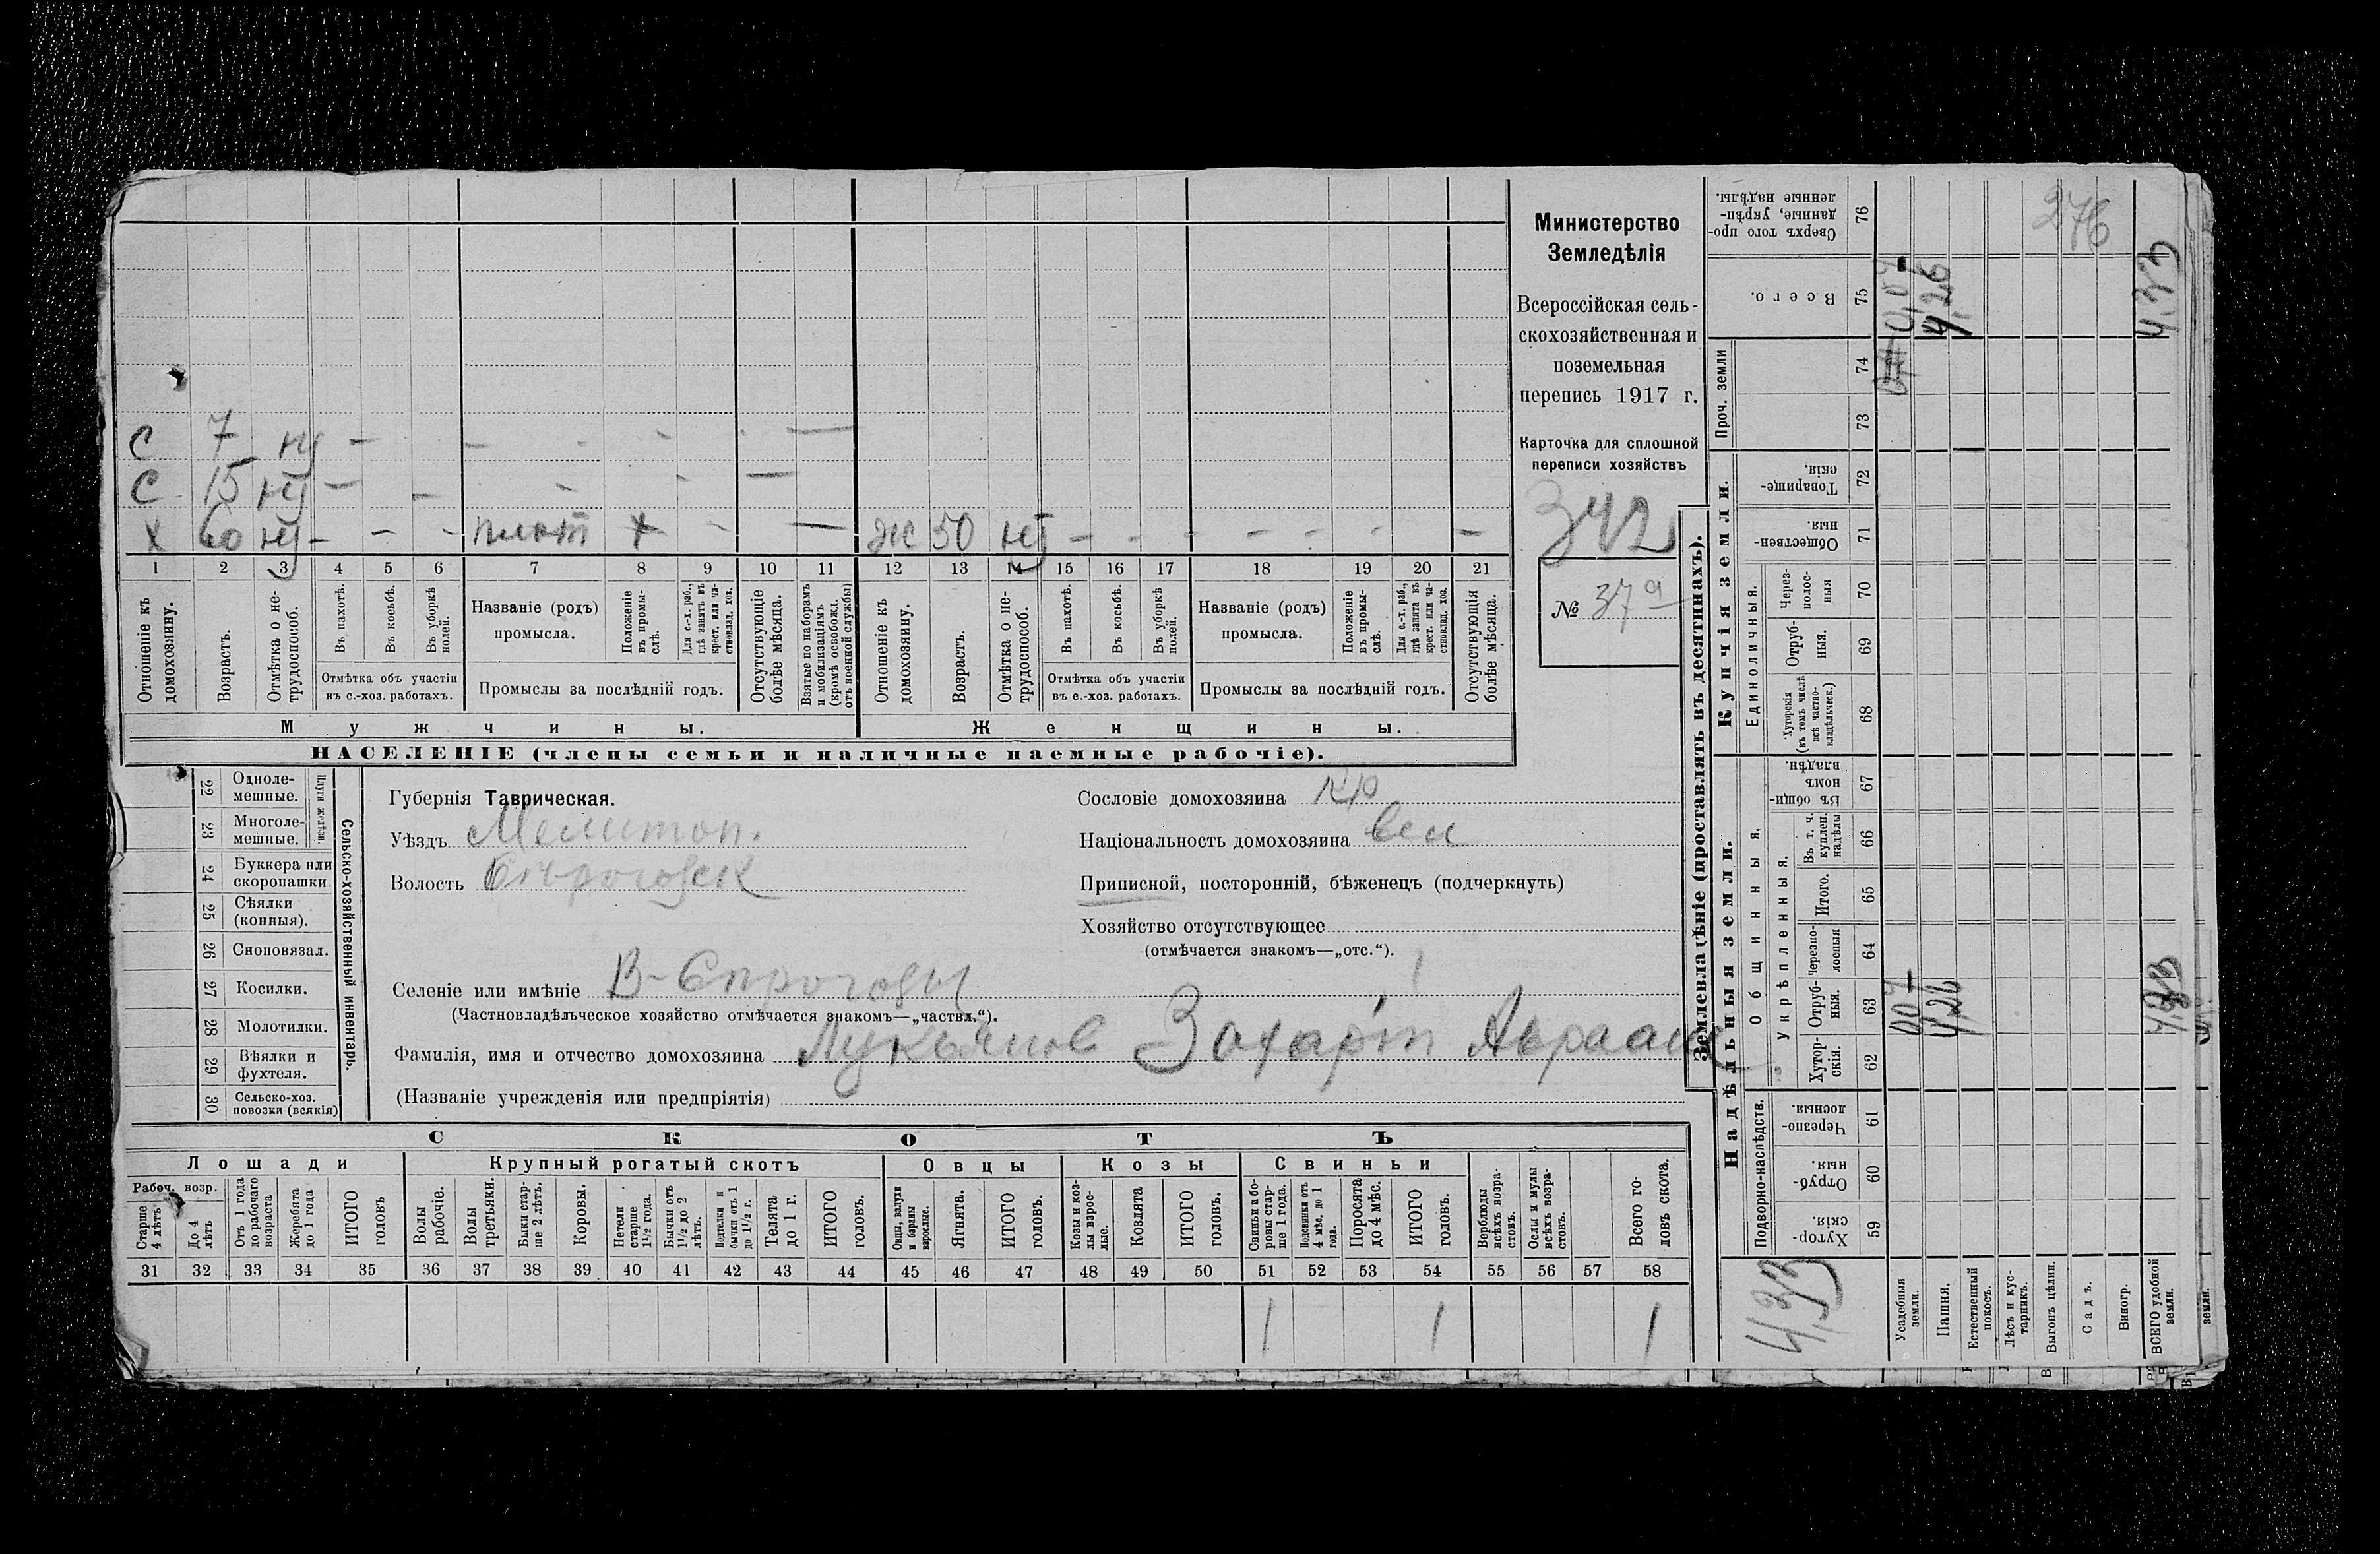 С 7 ну - - - - - —
С 15 ну - - - - —
Х 60 ну - - - плот + - — ж 50 ну - - - - - - -
1 2 3 4 5 6 7 8 9 10 11 12 13 14 15 16 17 18 19 20 21
Отношеніе къ домохозяину.
Возрастъ.
Отмѣтка о не-трудоспособ.
Въ пахотѣ.
Въ косьбѣ.
Въ уборкѣ полей.
Отмѣтка объ участіи въ с.-хоз. работахъ.
Названіе (родъ) промысла.
Положеніе въ промы-слѣ.
Для с.-х. раб., гдѣ занятъ въ крест. или ча-стновлад. хоз.
Промыслы за послѣдній годъ.
Отсутствующіе болѣе мѣсяца.
Взятые по наборамъ и мобилизаціямъ (кромѣ освобожд. отъ военной службы)
Отношеніе къ домохозяину.
Возрастъ.
Отмѣтка о не-трудоспособ.
Въ пахотѣ.
Въ косьбѣ.
Въ уборкѣ полей.
Отмѣтка объ участіи въ с.-хоз. работахъ.
Названіе (родъ) промысла.
Положеніе въ промы-слѣ.
Для с.-х. раб., гдѣ занята въ крест. или ча-стновлад. хоз.
Промыслы за послѣдній годъ.
Отсутствующія болѣе мѣсяца.
Мужчины. Женщины.
НАСЕЛЕНІЕ (члены семьи и наличные наемные рабочіе).
Министерство
Земледѣлія
Всероссійская сель-
скохозяйственная и
поземельная
перепись 1917 г.
Карточка для сплошной
переписи хозяйствъ
342
№ 37а
22 Одноле-мешные.
23 Многоле-мешные.
Плуги желѣзн.
24 Буккера или скоропашки.
25 Сѣялки (конныя).
26 Сноповязал.
27 Косилки.
28 Молотилки.
29 Вѣялки и фухтеля.
30 Сельско-хоз. повозки (всякія)
Сельско-хозяйственный инвентарь.
Губернія Таврическая.
Уѣздъ Мелитоп.
Волость
Селеніе или имѣніе
(Частновладѣльческое хозяйство отмѣчается знакомъ—„частвл.“).
Фамилія, имя и отчество домохозяина Лукьянов Захарій Авраам
(Названіе учрежденія или предпріятія)
Сословіе домохозяина кр
Національность домохозяина вел
Приписной, посторонній, бѣженецъ (подчеркнуть)
Хозяйство отсутствующее
(отмѣчается знакомъ—„отс.“).
СКОТЪ
Лошади Крупный рогатый скотъ Овцы Козы Свиньи
Рабоч. возр.
Старше 4 лѣтъ
До 4 лѣтъ
Отъ 1 года до рабочаго возраста
Жеребята до 1 года
ИТОГО головъ
Волы рабочіе.
Волы третьяки.
Быки стар-ше 2 лѣтъ.
Коровы.
Нетели старше 1½ года.
Бычки отъ 1½ до 2 лѣтъ.
Подтелки и бычки отъ 1 до 1½ г.
Телята до 1 г.
ИТОГО головъ.
Овцы, валухи и бараны взрослые.
Ягнята.
ИТОГО головъ.
Козы и коз-лы взрос-лые.
Козлята
ИТОГО головъ.
Свиньи и бо-ровы стар-ше 1 года.
Подсвинки отъ 4 мѣс. до 1 года.
Поросята до 4 мѣс.
ИТОГО головъ.
Верблюды всѣхъ возра-стовъ.
Ослы и мулы всѣхъ возра-стовъ.
Всего го-ловъ скота.
31 32 33 34 35 36 37 38 39 40 41 42 43 44 45 46 47 48 49 50 51 52 53 54 55 56 57 58
1 1 1
Землевладѣніе (проставлять въ десятинахъ).
Надѣльныя земли. Купчія земли. Проч. земли
Подворно-наслѣдств.
Общинныя.
Укрѣпленныя.
Единоличныя.
Хутор-скія. 59
Отруб-ныя. 60
Черезпо-лосныя. 61
Хутор-скія. 62
Отруб-ныя. 63
Черезпо-лосныя 64
Итого. 65
Въ т. ч. куплен. надѣлы 66
Въ общи-номъ владѣн. 67
Хуторскія (въ томъ числѣ всѣ частно-владѣльческ.) 68
Отруб-ныя. 69
Через-полос-ныя 70
Обществен-ныя. 71
Товарище-скія. 72
73
74
Всего. 75
Сверхъ того про-данные, укрѣп-ленные надѣлы. 76
4,33
Усадебныя земли. 0,07 0,07
Пашня. 4,26 4,26
Естественный покосъ.
Лѣсъ и кус-тарникъ.
Выгонъ цѣлин.
Садъ.
Виногр.
ВСЕГО удобной земли. 4,33 4,33
земли.
276